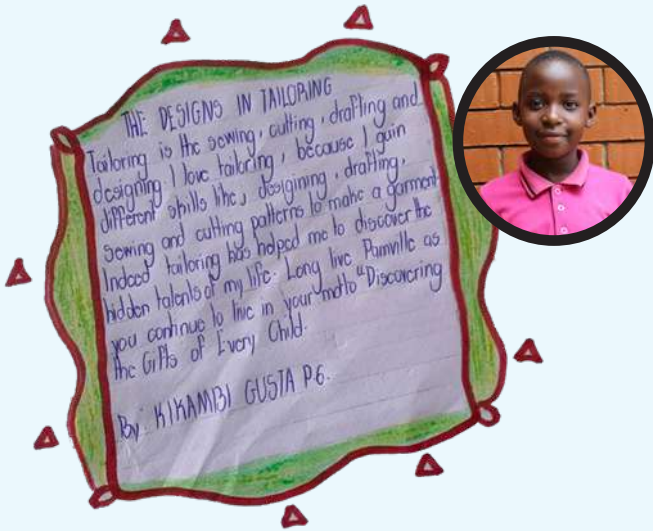 THE DESIGNS IN TAILORING
Tailoring is the sewing, cutting, drafting and
designing I love tailoring, because I gain
different skills like, desigining, drafting,
sewing and cutting patterns to make a garment
Indeed tailoring has helped me to discover the
hidden talents of my life. Long live Pamville as
you continue to live in your motto "Discovering
the Gifts of Every Child.
By: KIKAMBI GUSTA P.6.